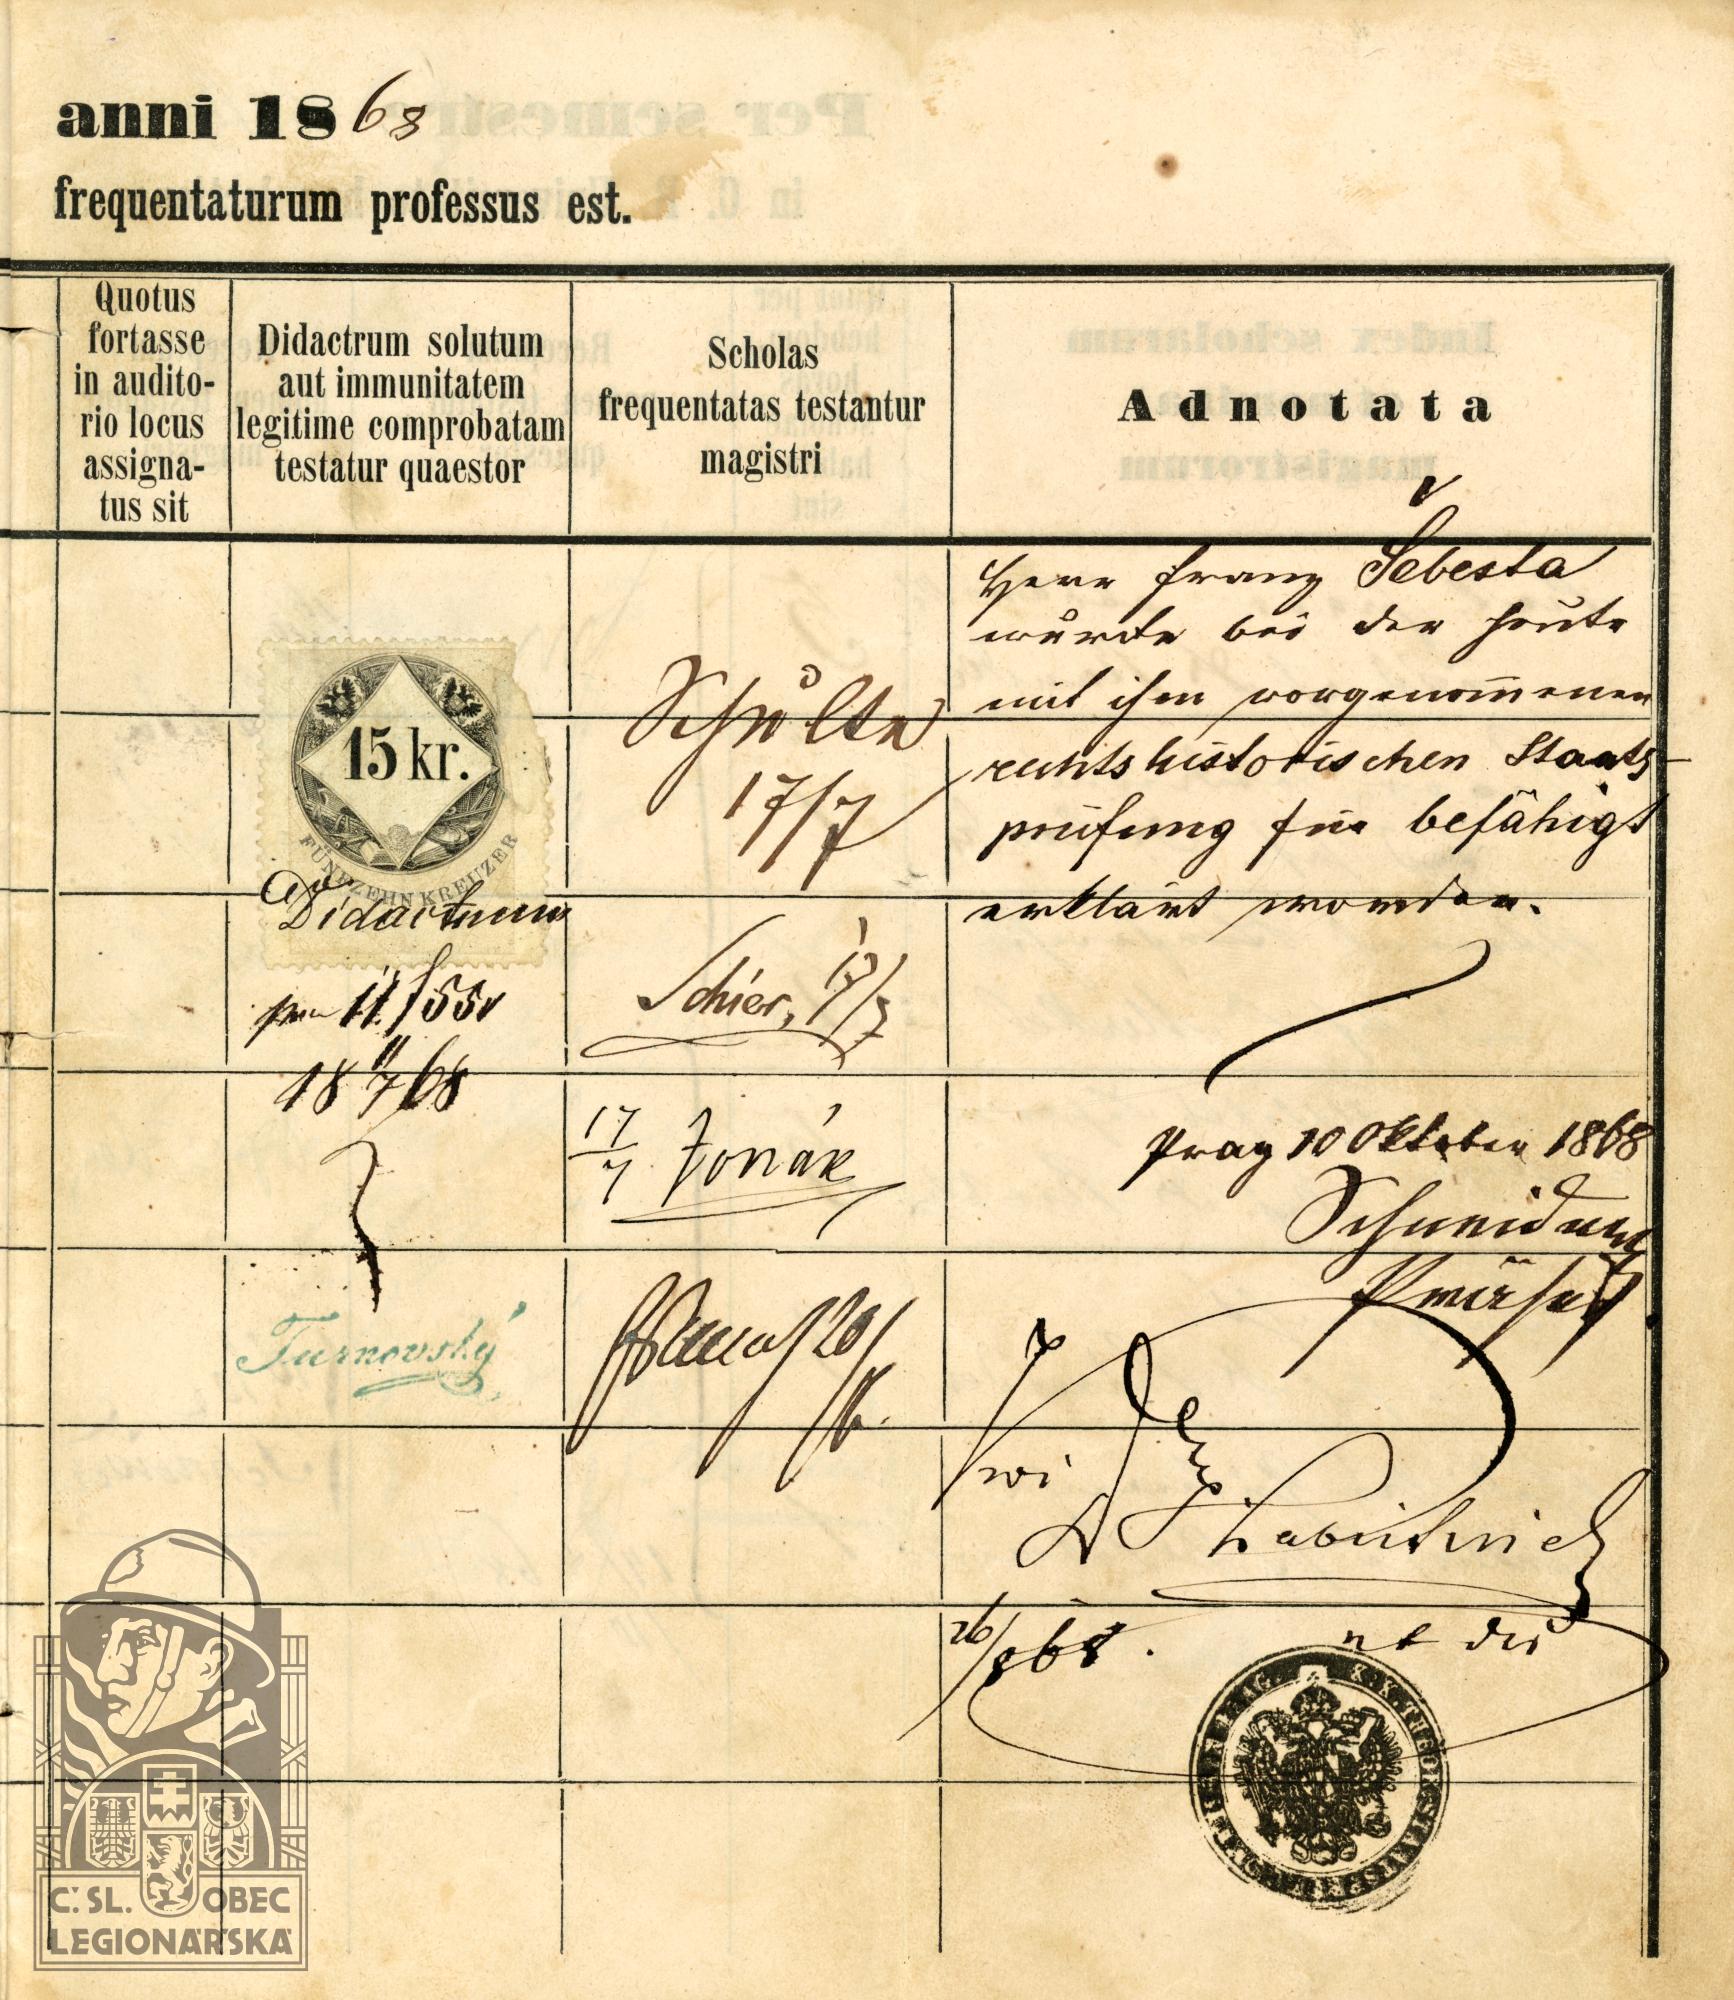 anni 1868
frequentaturum professus est.
Quotus
fortasse
in audito-
rio locus
assigna-
tus sit
Didactrum solutum
aut immunitatem
legitime comprobatam
testatur quaestor
Scholas
frequentatas testantur
magistri
Adnotata
15 kr.
FÜNFZEHN KREUZER
Didactrum
18 11/7 68
Turnovský
Schulte
17/7
Schier, 17/7
17/7 Jonák
20/
Herr Franz Šebesta
wurde bei der heute
mit ihm vorgenommenen
rechtshistorischen Staats-
prüfung für befähigt
erklärt worden.
Prag 10 Oktober 1868
Schneider
Präses
26/
868.
C. SL. OBEC
LEGIONÁŘSKÁ